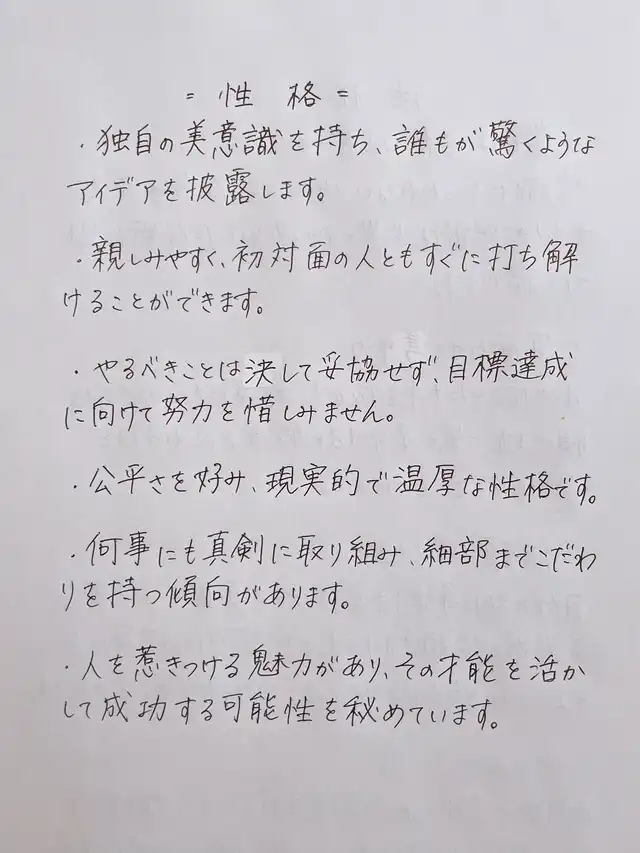 = 性 格 =
・独自の美意識を持ち、誰もが驚くような
アイデアを披露します。
・親しみやすく、初対面の人ともすぐに打ち解
けることができます。
・やるべきことは決して妥協せず、目標達成
に向けて努力を惜しみません。
・公平さを好み、現実的で温厚な性格です。
・何事にも真剣に取り組み、細部までこだわ
りを持つ傾向があります。
・人を惹きつける魅力があり、その才能を活か
して成功する可能性を秘めています。